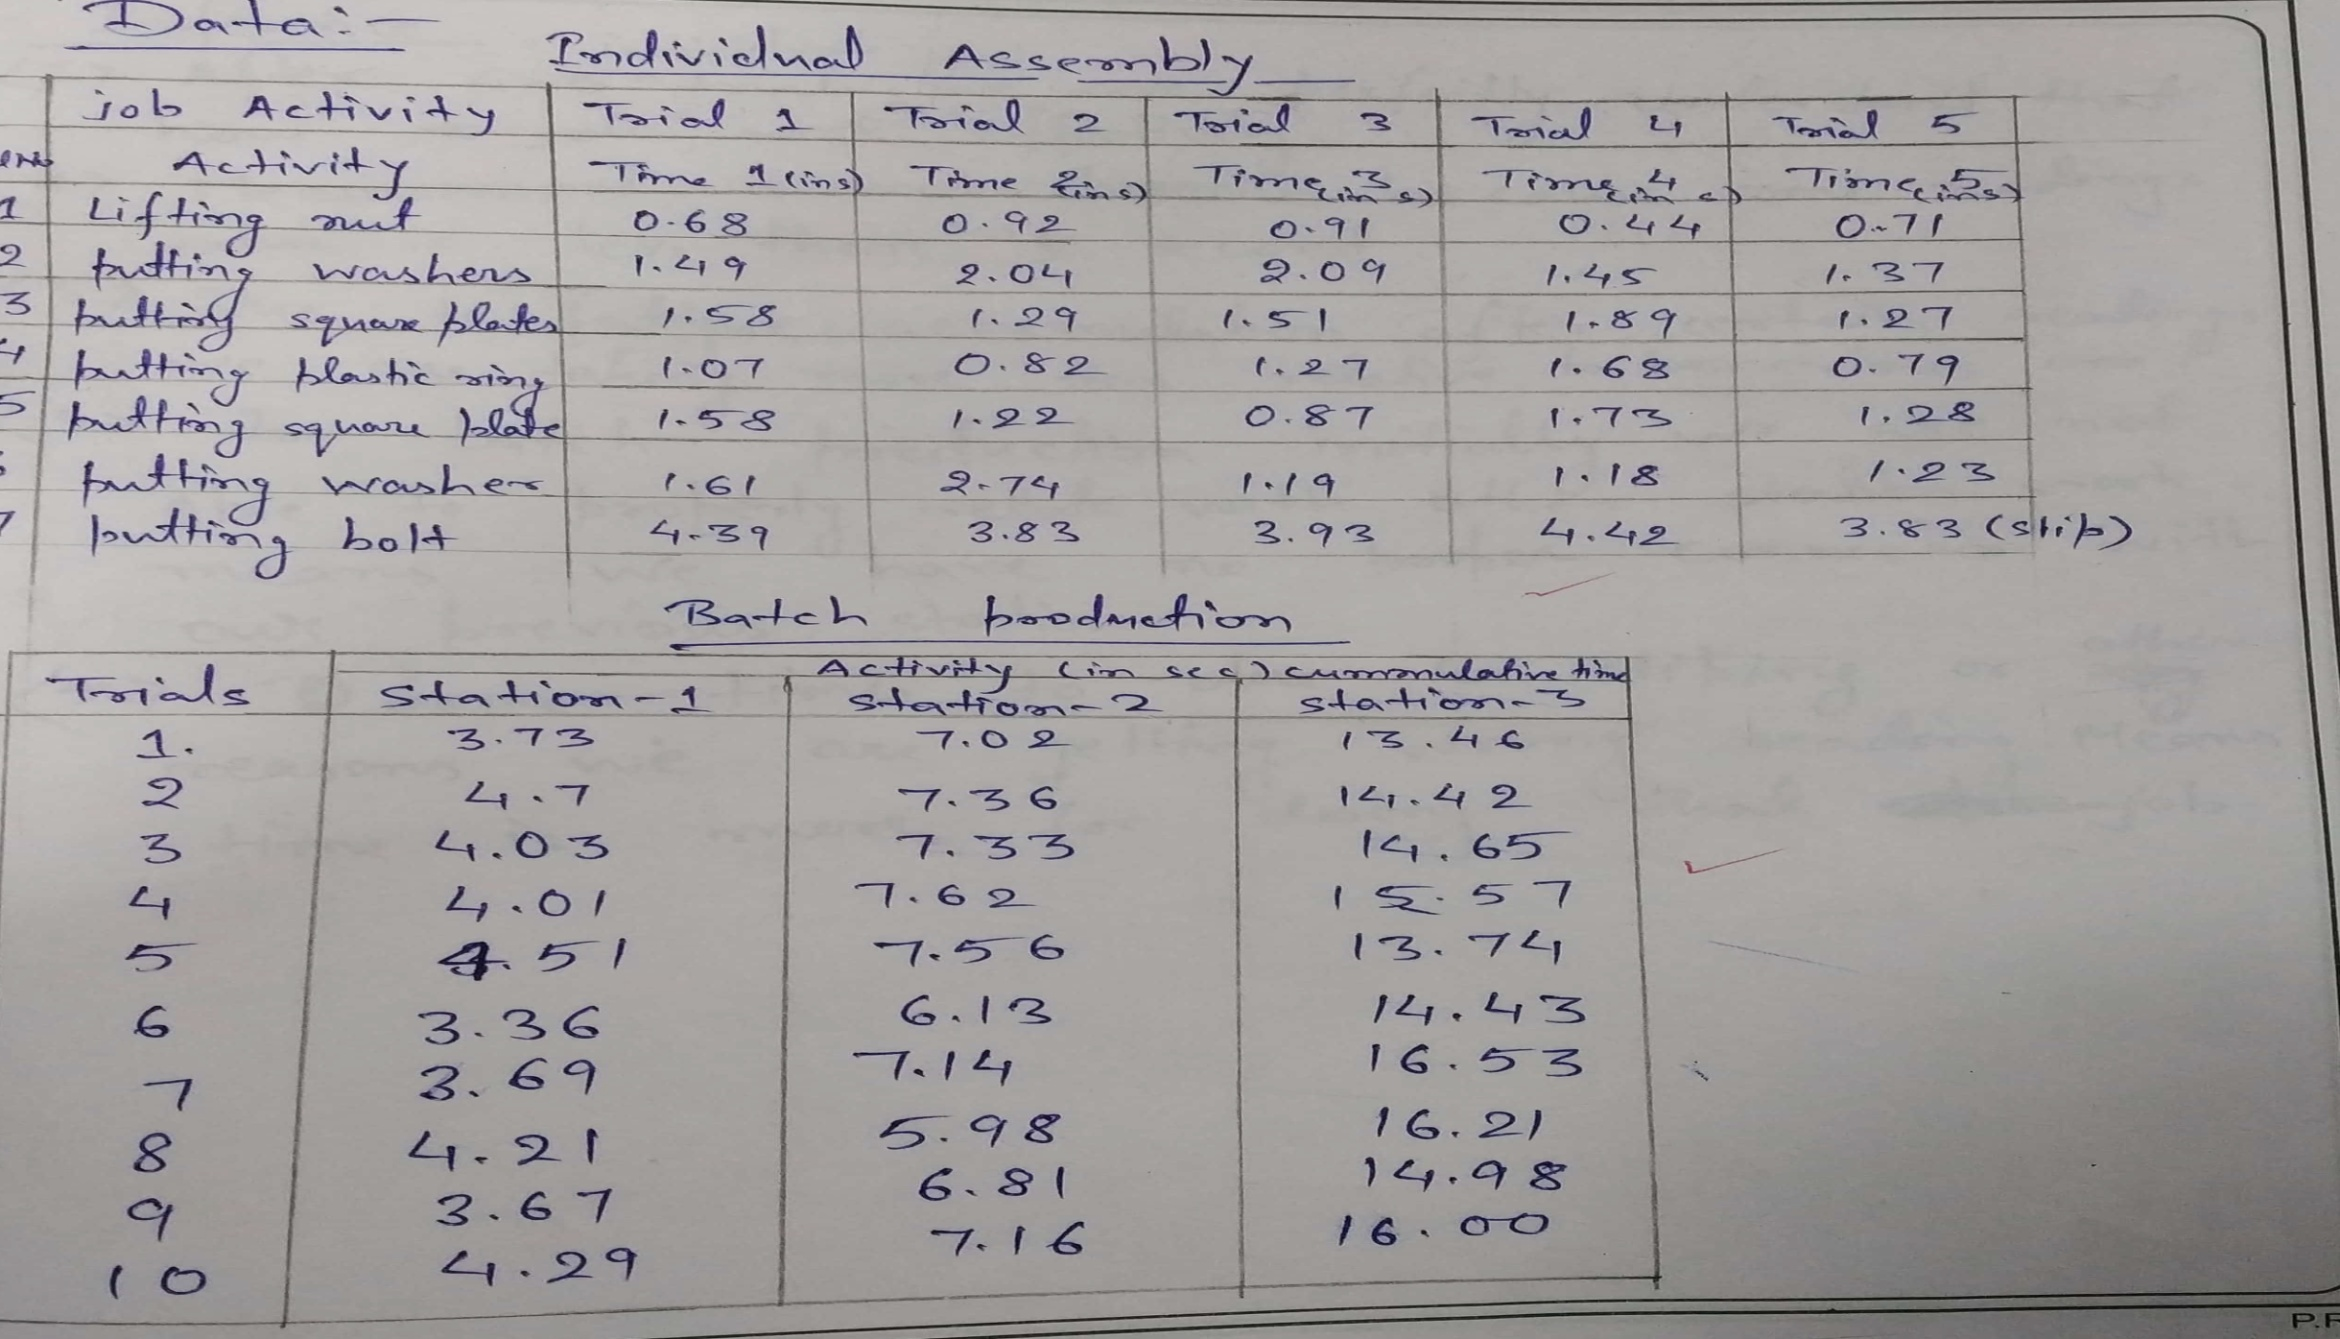 Data:-
Individual Assembly
job Activity Trial 1 Trial 2 Trial 3 Trial 4 Trial 5
Activity Time 1 (in s) Time 2 (in s) Time 3 (in s) Time 4 (in s) Time 5 (in s)
1 Lifting nut 0.68 0.92 0.91 0.44 0.71
2 putting washers 1.49 2.04 2.09 1.45 1.37
3 putting square plates 1.58 1.29 1.51 1.89 1.27
4 putting plastic ring 1.07 0.82 1.27 1.68 0.79
5 putting square plate 1.58 1.22 0.87 1.73 1.28
putting washer 1.61 2.74 1.19 1.18 1.23
7 putting bolt 4.39 3.83 3.93 4.42 3.83 (slip)
Batch production
Activity (in sec) cummulative time
Trials Station-1 Station-2 Station-3
1. 3.73 7.02 13.46
2 4.7 7.36 14.42
3 4.03 7.33 14.65
4 4.01 7.62 15.57
5 4.51 7.56 13.74
6 3.36 6.13 14.43
7 3.69 7.14 16.53
8 4.21 5.98 16.21
9 3.67 6.81 14.98
10 4.29 7.16 16.00